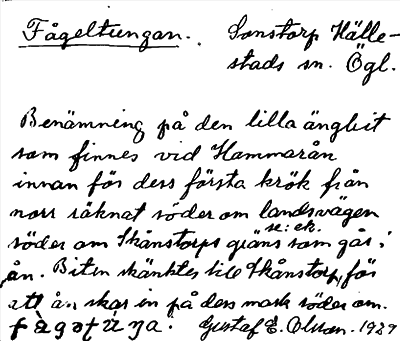 Fågeltungan. Sonstorp Hälle-
stads sn. Ögl.
Benämning på den lilla änglist
som finnes vid Hammarån
innan för dess första krök från
norr räknat söder om landsvägen
se: ek.
söder om Skånstorps gräns som går i
ån. Biten skänktes till Skånstorp, för
att ån skar in på dess mark söder om.
Gustaf E. Olsson. 1927